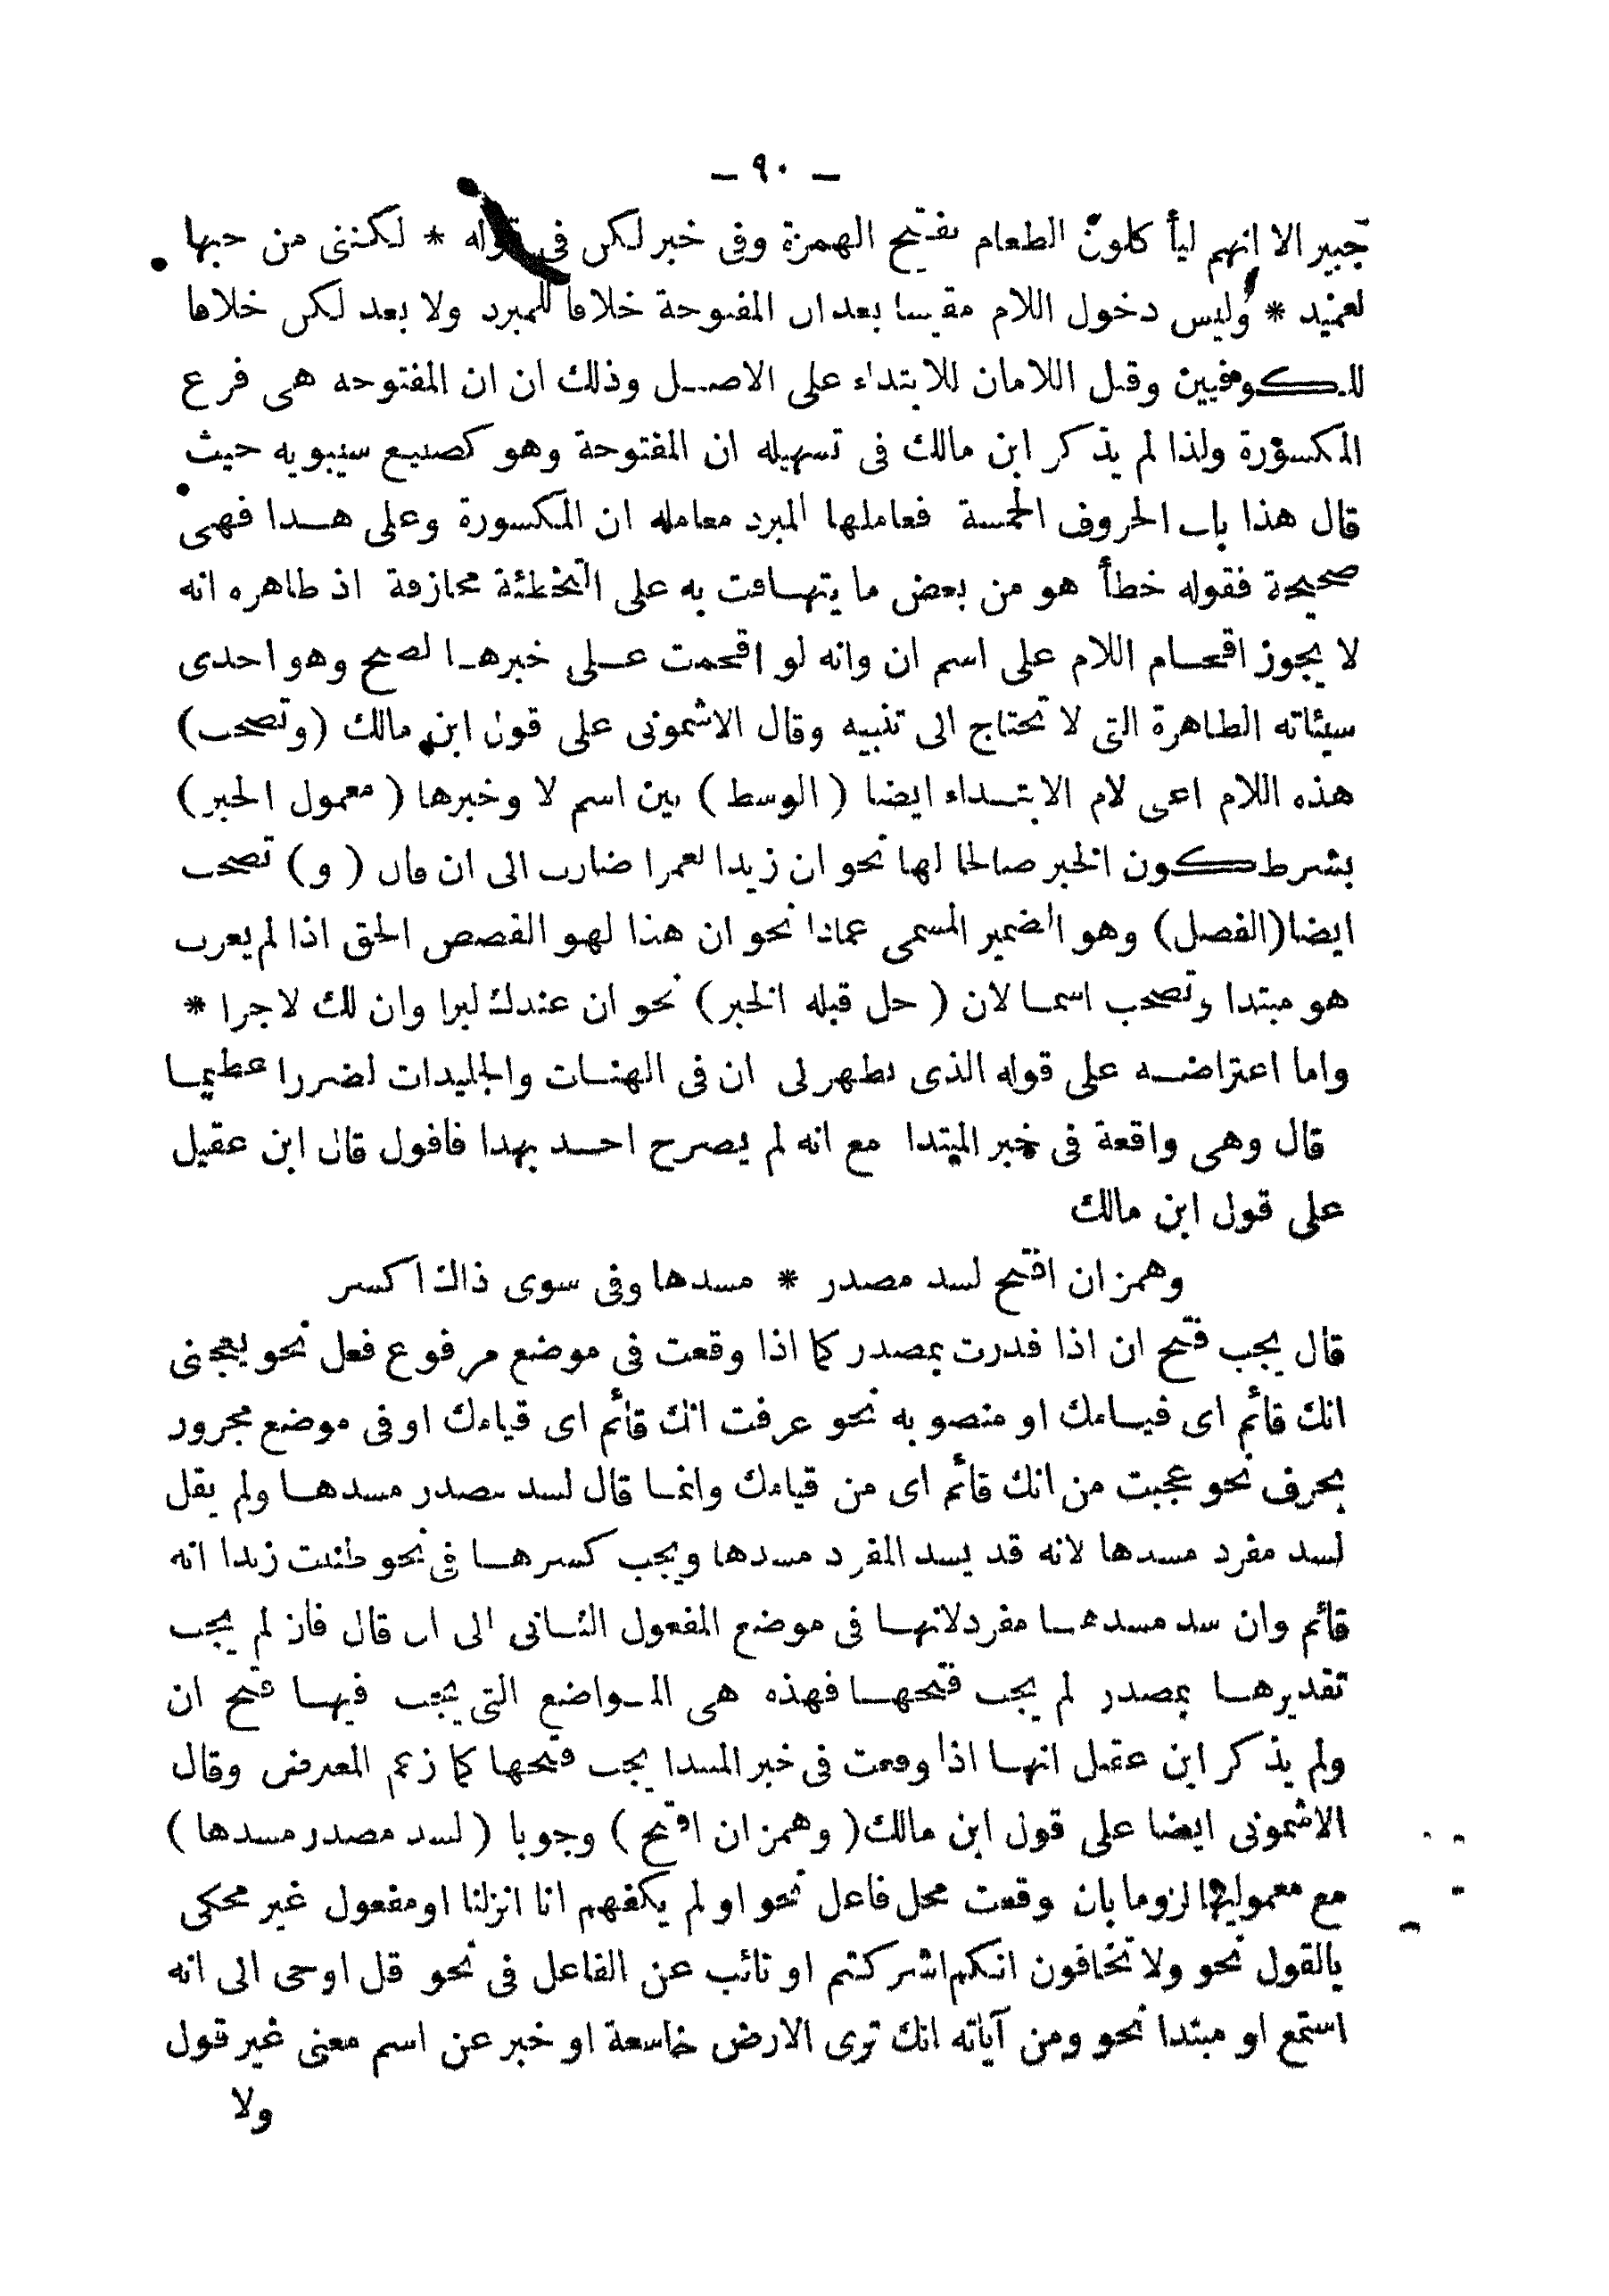 – ٩٠ –
جبير الا انهم ليأ كلون الطعام بفتح الهمزة وفى خبر لكن فى قوله * لكننى من حبها
لعميد * وليس دخول اللام مقيسا بعد ان المفتوحة خلافا للمبرد ولا بعد لكن خلافا
للكوفيين وقيل اللامان للابتداء على الاصل وذلك ان ان المفتوحه هى فرع
المكسورة ولذا لم يذ كر ابن مالك فى تسهيله ان المفتوحة وهو كصنيع سيبويه حيث
قال هذا باب الحروف الخمسة فعاملها المبرد معامله ان المكسورة وعلى هذا فهى
صحيحة فقوله خطأ هو من بعض ما يتهافت به على التخطئة مجازفة اذ ظاهره انه
لا يجوز اقحام اللام على اسم ان وانه لو اقحمت على خبرها لصح وهو احدى
سيئاته الظاهرة التى لا تحتاج الى تنبيه وقال الاشمونى على قول ابن مالك (وتصحب)
هذه اللام اعنى لام الابتداء ايضا ( الوسط ) بين اسم لا وخبرها ( معمول الخبر )
بشرط كون الخبر صالحا لها نحو ان زيدا لعمرا ضارب الى ان قال ( و ) تصحب
ايضا (الفصل) وهو الضمير المسمى عمادا نحو ان هذا لهو القصص الحق اذا لم يعرب
هو مبتدا وتصحب اسما لان ( حل قبله الخبر ) نحو ان عندك لبرا وان لك لاجرا *
واما اعتراضه على قوله الذى يظهر لى ان فى الهنات والجليدات لضررا عظيما
قال وهى واقعة فى خبر المبتدا مع انه لم يصرح احد بهذا فاقول قال ابن عقيل
على قول ابن مالك
وهمز ان افتح لسد مصدر * مسدها وفى سوى ذاك اكسر
قال يجب فتح ان اذا قدرت بمصدر كما اذا وقعت فى موضع مرفوع فعل نحو يعجبنى
انك قائم اى قيامك او منصوبه نحو عرفت انك قائم اى قيامك او فى موضع مجرور
بحرف نحو عجبت من انك قائم اى من قيامك وانما قال لسد مصدر مسدها ولم يقل
لسد مفرد مسدها لانه قد يسد المفرد مسدها ويجب كسرها فى نحو ظننت زيدا انه
قائم وان سد مسدها مفرد لانها فى موضع المفعول الثانى الى ان قال فان لم يجب
تقديرها بمصدر لم يجب فتحها فهذه هى المواضع التى يجب فيها فتح ان
ولم يذ كر ابن عقيل انها اذا وقعت فى خبر المبتدا يجب فتحها كما زعم المعترض وقال
الاشمونى ايضا على قول ابن مالك ( وهمز ان افتح ) وجوبا ( لسد مصدر مسدها )
مع معموليها لزوما بان وقعت محل فاعل نحو او لم يكفهم انا انزلنا او مفعول غير محكى
بالقول نحو ولا تخافون انكم اشركتم او نائب عن الفاعل فى نحو قل اوحى الى انه
استمع او مبتدا نحو ومن آياته انك ترى الارض خاسعة او خبر عن اسم معنى غير قول
ولا